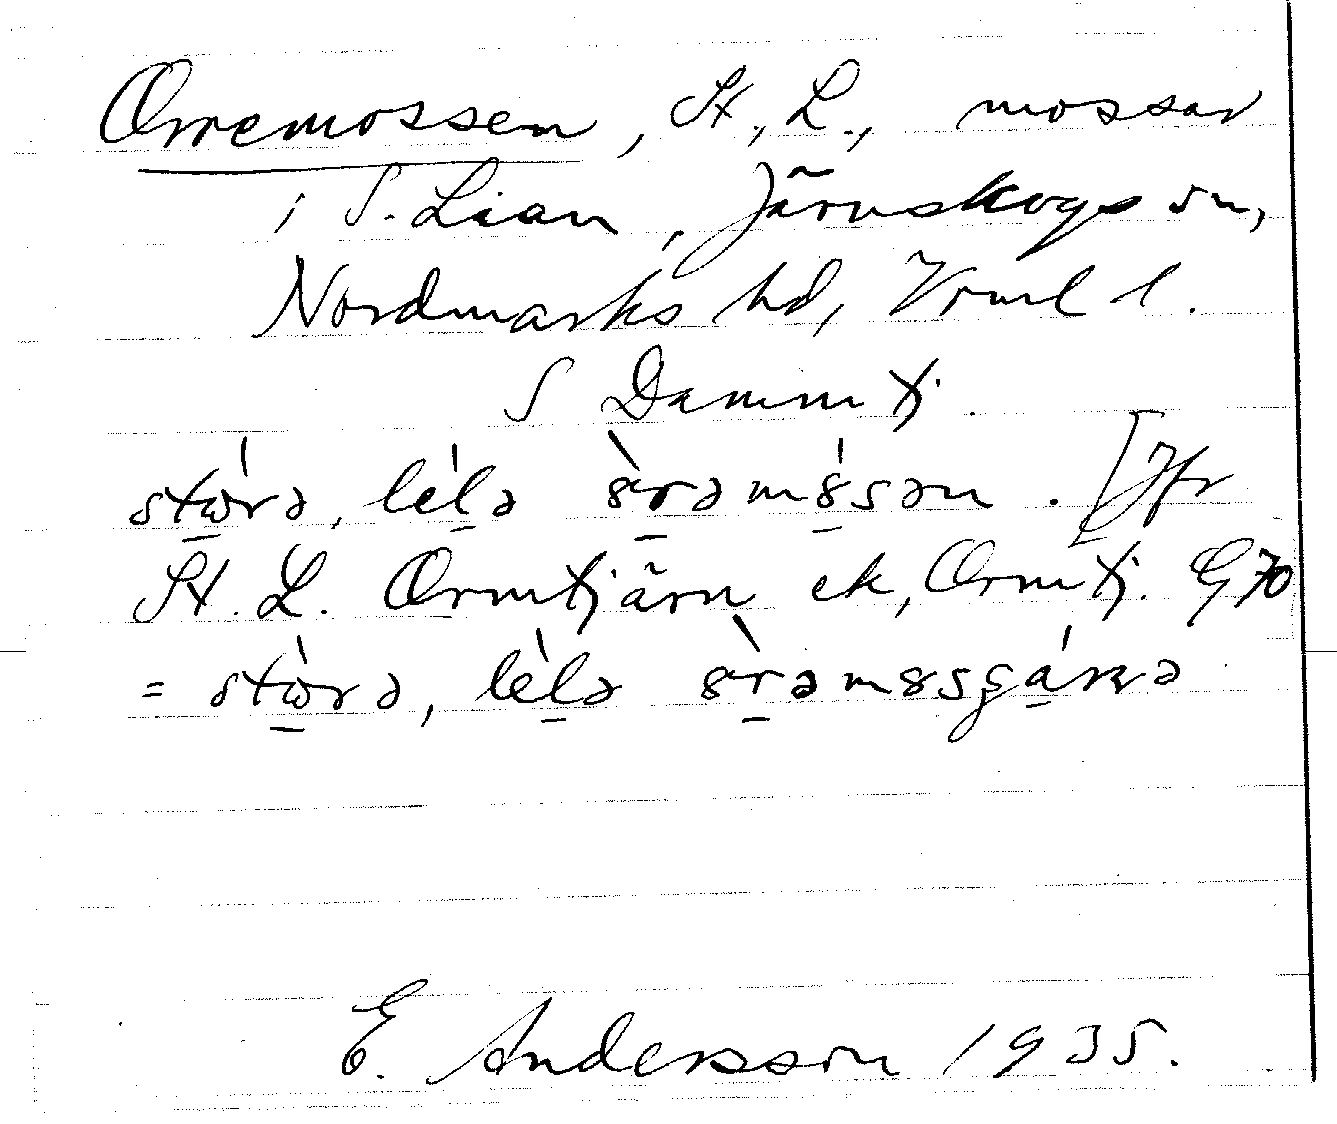 Orremossen, St., L., mossar
i S. Lian, Järnskogs sn,
Nordmarks hd, Vrml l.
S Dammtj.
stωrə, lelə 8rəm8sən. [Jfr
St. L. Ormtjärn ek, Ormtj. G70
= stωrə, lelə 8rəm8sgārə
E. Andersson 1935.